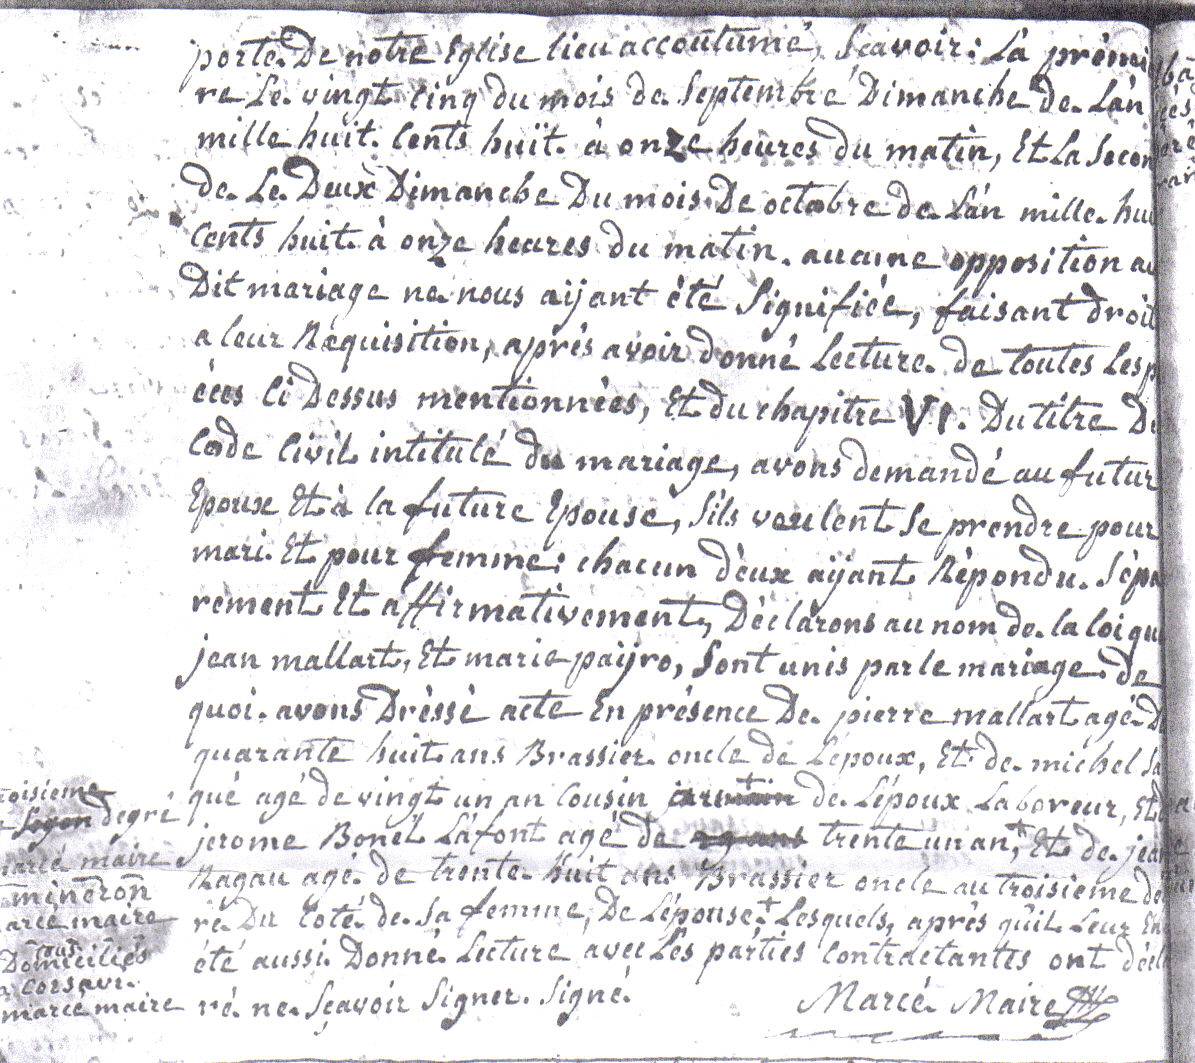 porte De notre Eglise lieu accoutumé, Scavoir: La prémi
re Le vingt cinq du mois de Septembre Dimanche de Lán
mille huit Cents huit à onze heures du matin, Et La Secon
de Le Deux Dimanche Du mois De octobre de Lán mille hui
Cents huit à onze heures du matin. aucune opposition au
Dit mariage ne nous aijant été Signifiée, faisant droit
a leur Réquisition, aprés avoir donné Lecture de toutes Les p
éces Ci Dessus mentionnées, Et du chapitre VI. Du titre Du
Code Civil intitulé du mariage, avons demandé au futur
Epoux Et à la future Epouse, Sils veulent Se prendre pour
mari Et pour femme: chacun déux aijant Répondu Sépa
rement Et affirmativement, Déclarons au nom de la loi qu
jean mallart, Et marie paijro, Sont unis par le mariage. De
quoi avons Dréssé acte En présence De pierre mallart agé D
quarante huit ans Brassier oncle de Lépoux, Et de michel Sa
qué agé de vingt un an Cousin germain de Lépoux Laboreur, Et
jerome Bonél Láfont agé de trente un an,+ Et de jean
Ragau agé de trente huit ans Brassier oncle au troisieme de
ré Du Coté de Sa femme, De Lépouse+ Lesquels, aprés quil Leur En
été aussi Donné Lecture avec Les párties Contractantes ont décla
ré ne Sçavoir Signer. Signé. Marcé Maire
troisieme
Segon degré
marcé maire
mineron
marcé maire
tous
Domiciliés
a Corsavi.
marcé maire